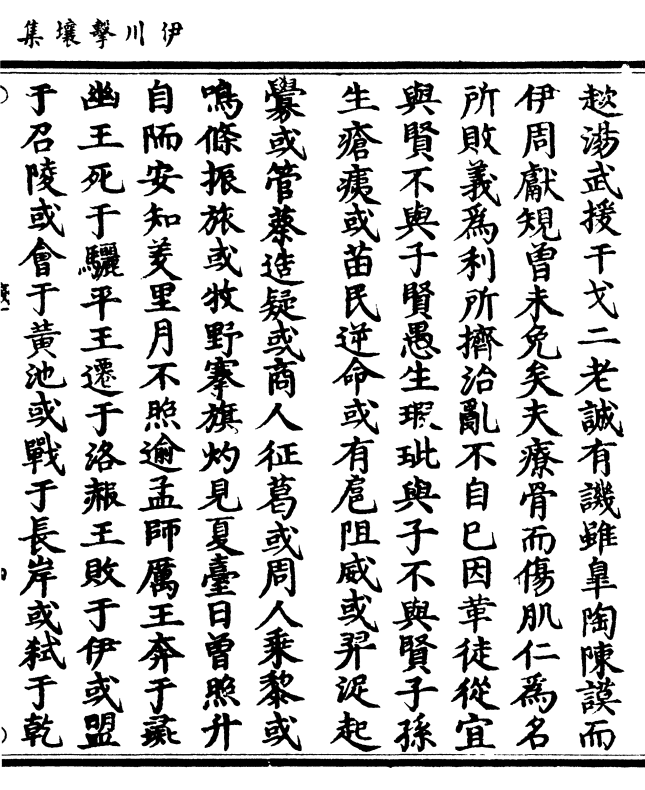 伊川擊壤集
趑湯武援干戈二老誠有譏雖皐陶陳謨而
伊周獻規曾未免矣夫療骨而傷肌仁為名
所敗義為利所擠治亂不自已因革徒從宜
與賢不與子賢愚生瑕玼與子不與賢子孫
生瘡痍或苗民逆命或有扈阻威或羿浞起
釁或管蔡造疑或商人征葛或周人乘黎或
鳴條振旅或牧野搴旗灼見夏臺日曾照升
自陑安知羑里月不照逾孟師厲王奔于彘
幽王死于驪平王遷于洛赧王敗于伊或盟
于召陵或會于黃池或戰于長岸或弒于乾